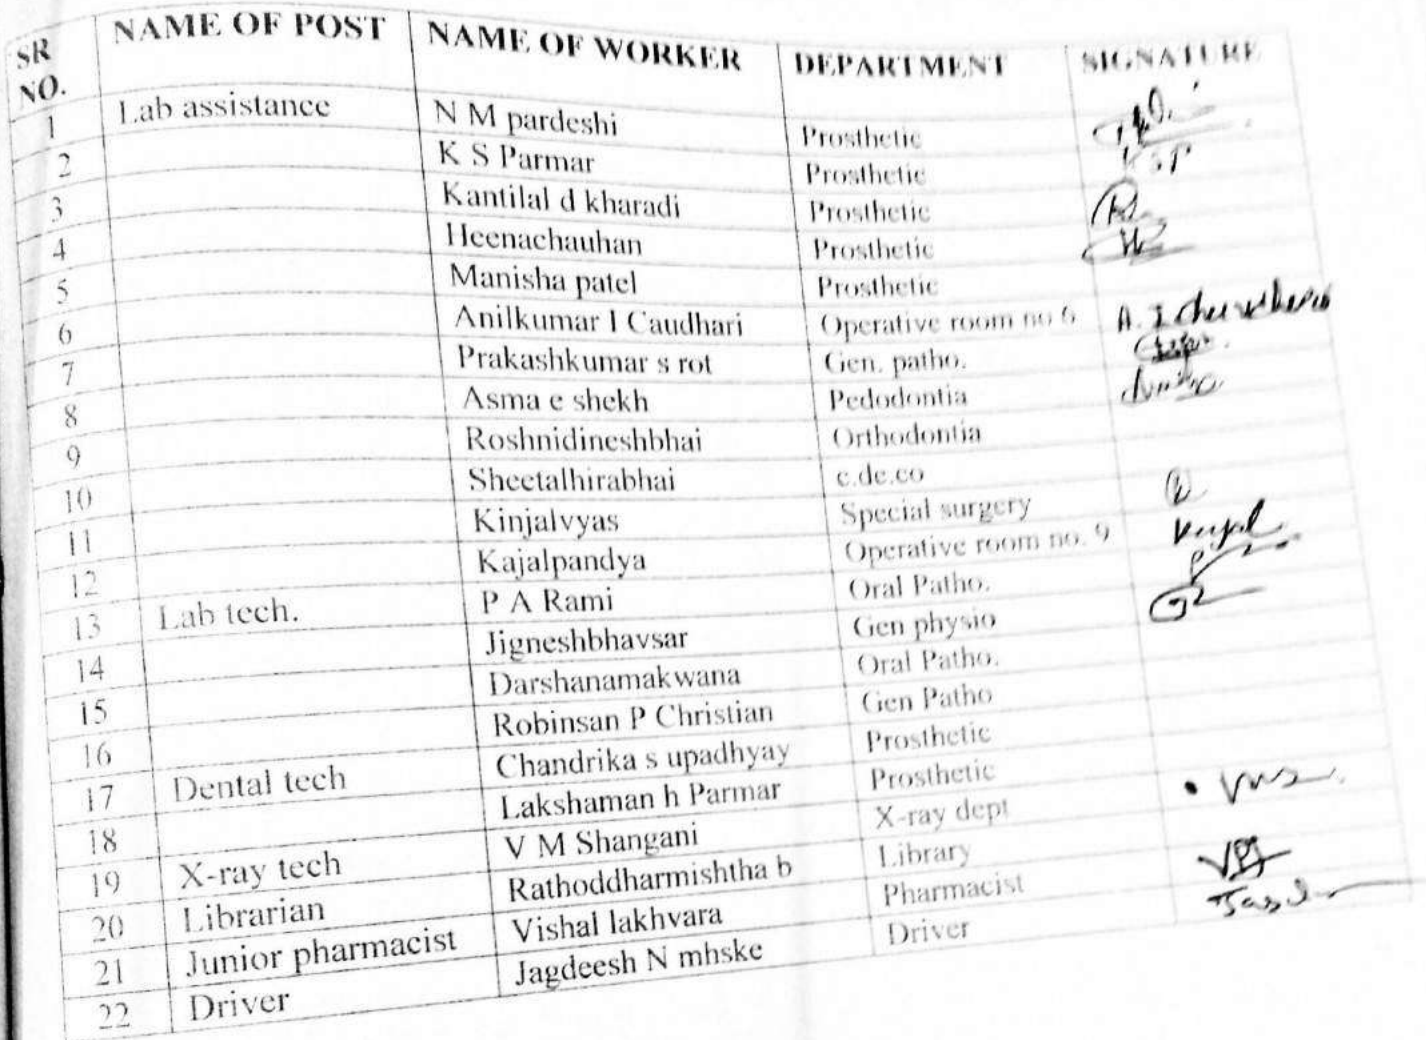 SR NO. NAME OF POST NAME OF WORKER DEPARTMENT SIGNATURE
1 Lab assistance N M pardeshi Prosthetic
2 K S Parmar Prosthetic K S P
3 Kantilal d kharadi Prosthetic
4 Heenachauhan Prosthetic
5 Manisha patel Prosthetic
6 Anilkumar I Caudhari Operative room no 6
7 Prakashkumar s rot Gen. patho.
8 Asma e shekh Pedodontia
9 Roshnidineshbhai Orthodontia
10 Sheetalhirabhai c.de.co
11 Kinjalvyas Special surgery
12 Kajalpandya Operative room no. 9 Kajal
13 Lab tech. P A Rami Oral Patho.
14 Jigneshbhavsar Gen physio
15 Darshanamakwana Oral Patho.
16 Robinsan P Christian Gen Patho
17 Dental tech Chandrika s upadhyay Prosthetic
18 Lakshaman h Parmar Prosthetic
19 X-ray tech V M Shangani X-ray dept
20 Librarian Rathoddharmishtha b Library
21 Junior pharmacist Vishal lakhvara Pharmacist
22 Driver Jagdeesh N mhske Driver